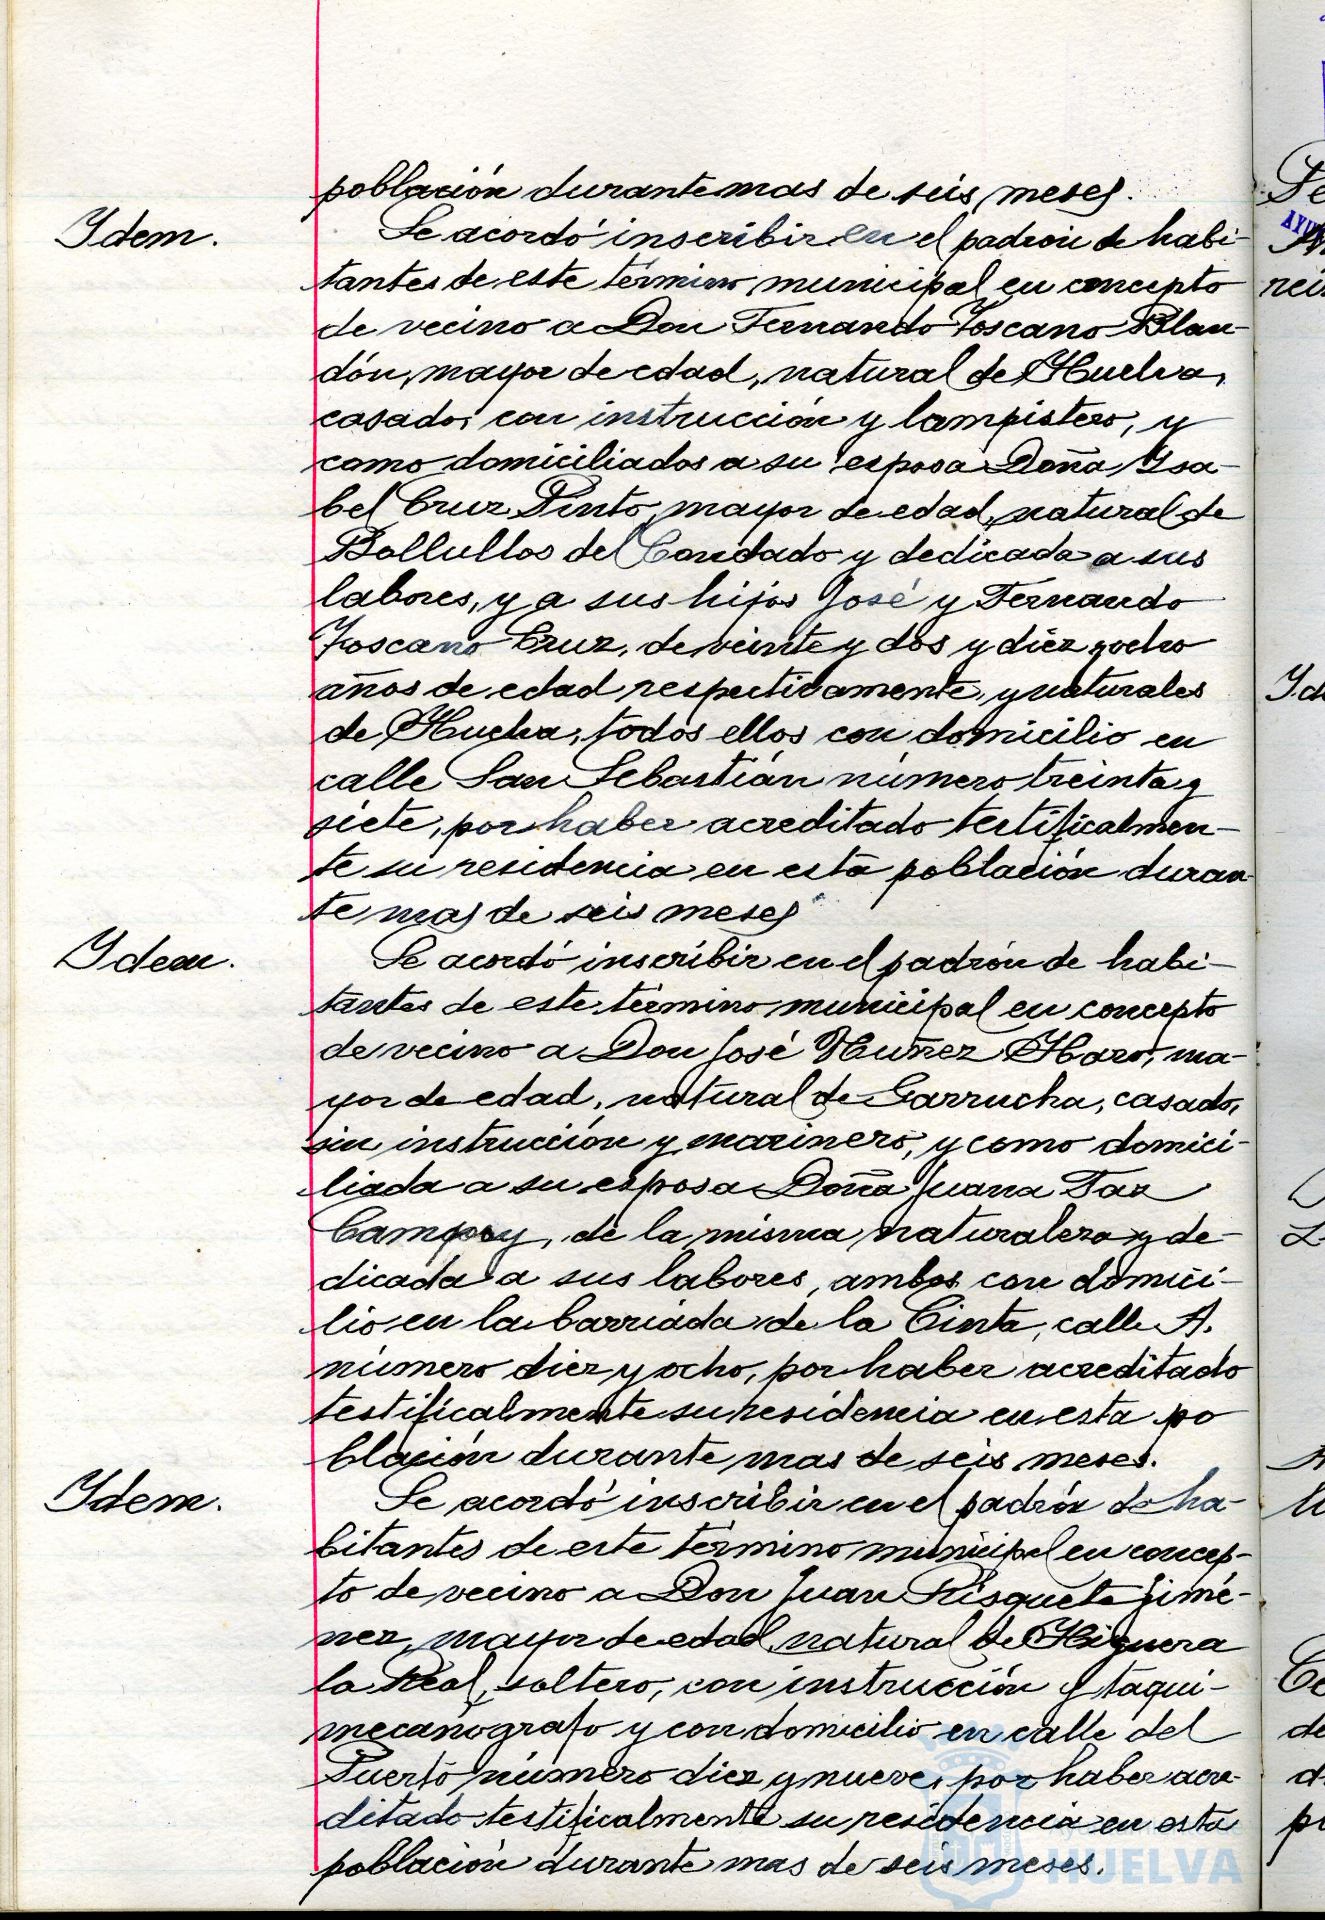 población durante mas de seis meses.
Idem.
Se acordó inscribir en el padrón de habi-
tantes de este término municipal en concepto
de vecino a Don Fernando Toscano Blan-
dón, mayor de edad, natural de Huelva,
casado, con instrucción y lampistero, y
como domiciliados a su esposa Doña Isa-
bel Cruz Pinto, mayor de edad, natural de
Bollullos del Condado y dedicada a sus
labores, y a sus hijos José y Fernando
Toscano Cruz, de veinte y dos y diez y ocho
años de edad respectivamente, y naturales
de Huelva, todos ellos con domicilio en
calle San Sebastián número treinta y
siete, por haber acreditado testificalmen-
te su residencia en esta población duran-
te mas de seis meses
Idem.
Se acordó inscribir en el padrón de habi-
tantes de este término municipal en concepto
de vecino a Don José Nuñez Haro, ma-
yor de edad, natural de Garrucha, casado,
sin instrucción y marinero, y como domici-
liada a su esposa Doña Juana
de la misma naturaleza y de-
dicada a sus labores, ambos con domici-
lio en la barriada de la Cinta, calle A.
número diez y ocho, por haber acreditado
testificalmente su residencia en esta po
blación durante mas de seis meses.
Idem.
Se acordó inscribir en el padrón de ha-
bitantes de este término municipal en concep-
to de vecino a Don Juan Risquete Jimé-
nez, mayor de edad, natural de Higuera
la Real, soltero, con instrucción y taqui-
mecanógrafo y con domicilio en calle del
Puerto número diez y nueve, por haber acre-
ditado testificalmente su residencia en esta
población durante mas de seis meses.
HUELVA